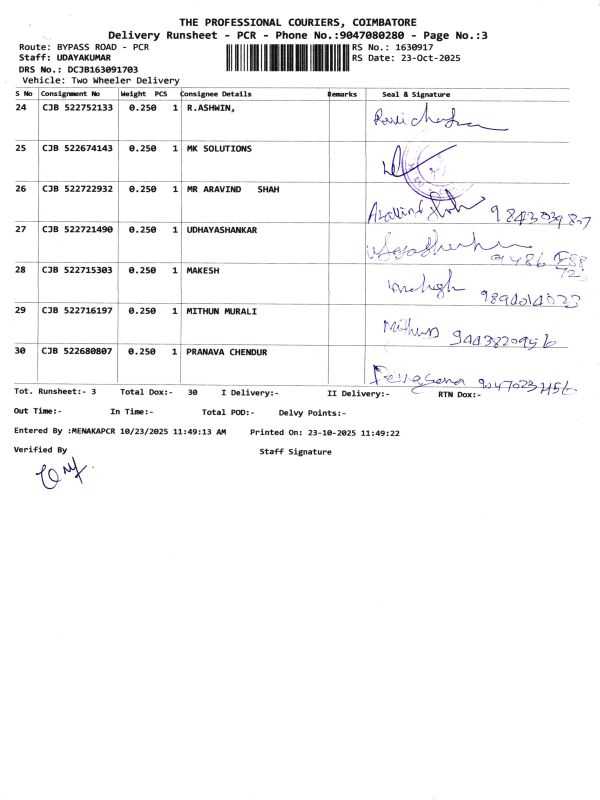 THE PROFESSIONAL COURIERS, COIMBATORE
Delivery Runsheet - PCR - Phone No.:9047080280 - Page No.:3
Route: BYPASS ROAD - PCR RS No.: 1630917
Staff: UDAYAKUMAR RS Date: 23-Oct-2025
DRS No.: DCJB163091703
Vehicle: Two Wheeler Delivery
S No Consignment No Weight PCS Consignee Details Remarks Seal & Signature
24 CJB 522752133 0.250 1 R.ASHWIN,
25 CJB 522674143 0.250 1 MK SOLUTIONS
26 CJB 522722932 0.250 1 MR ARAVIND SHAH 9843039807
27 CJB 522721490 0.250 1 UDHAYASHANKAR
28 CJB 522715303 0.250 1 MAKESH
29 CJB 522716197 0.250 1 MITHUN MURALI Mithun 9443820956
30 CJB 522680807 0.250 1 PRANAVA CHENDUR
Tot. Runsheet:- 3 Total Dox:- 30 I Delivery:- II Delivery:- RTN Dox:-
Out Time:- In Time:- Total POD:- Delvy Points:-
Entered By :MENAKAPCR 10/23/2025 11:49:13 AM Printed On: 23-10-2025 11:49:22
Verified By Staff Signature